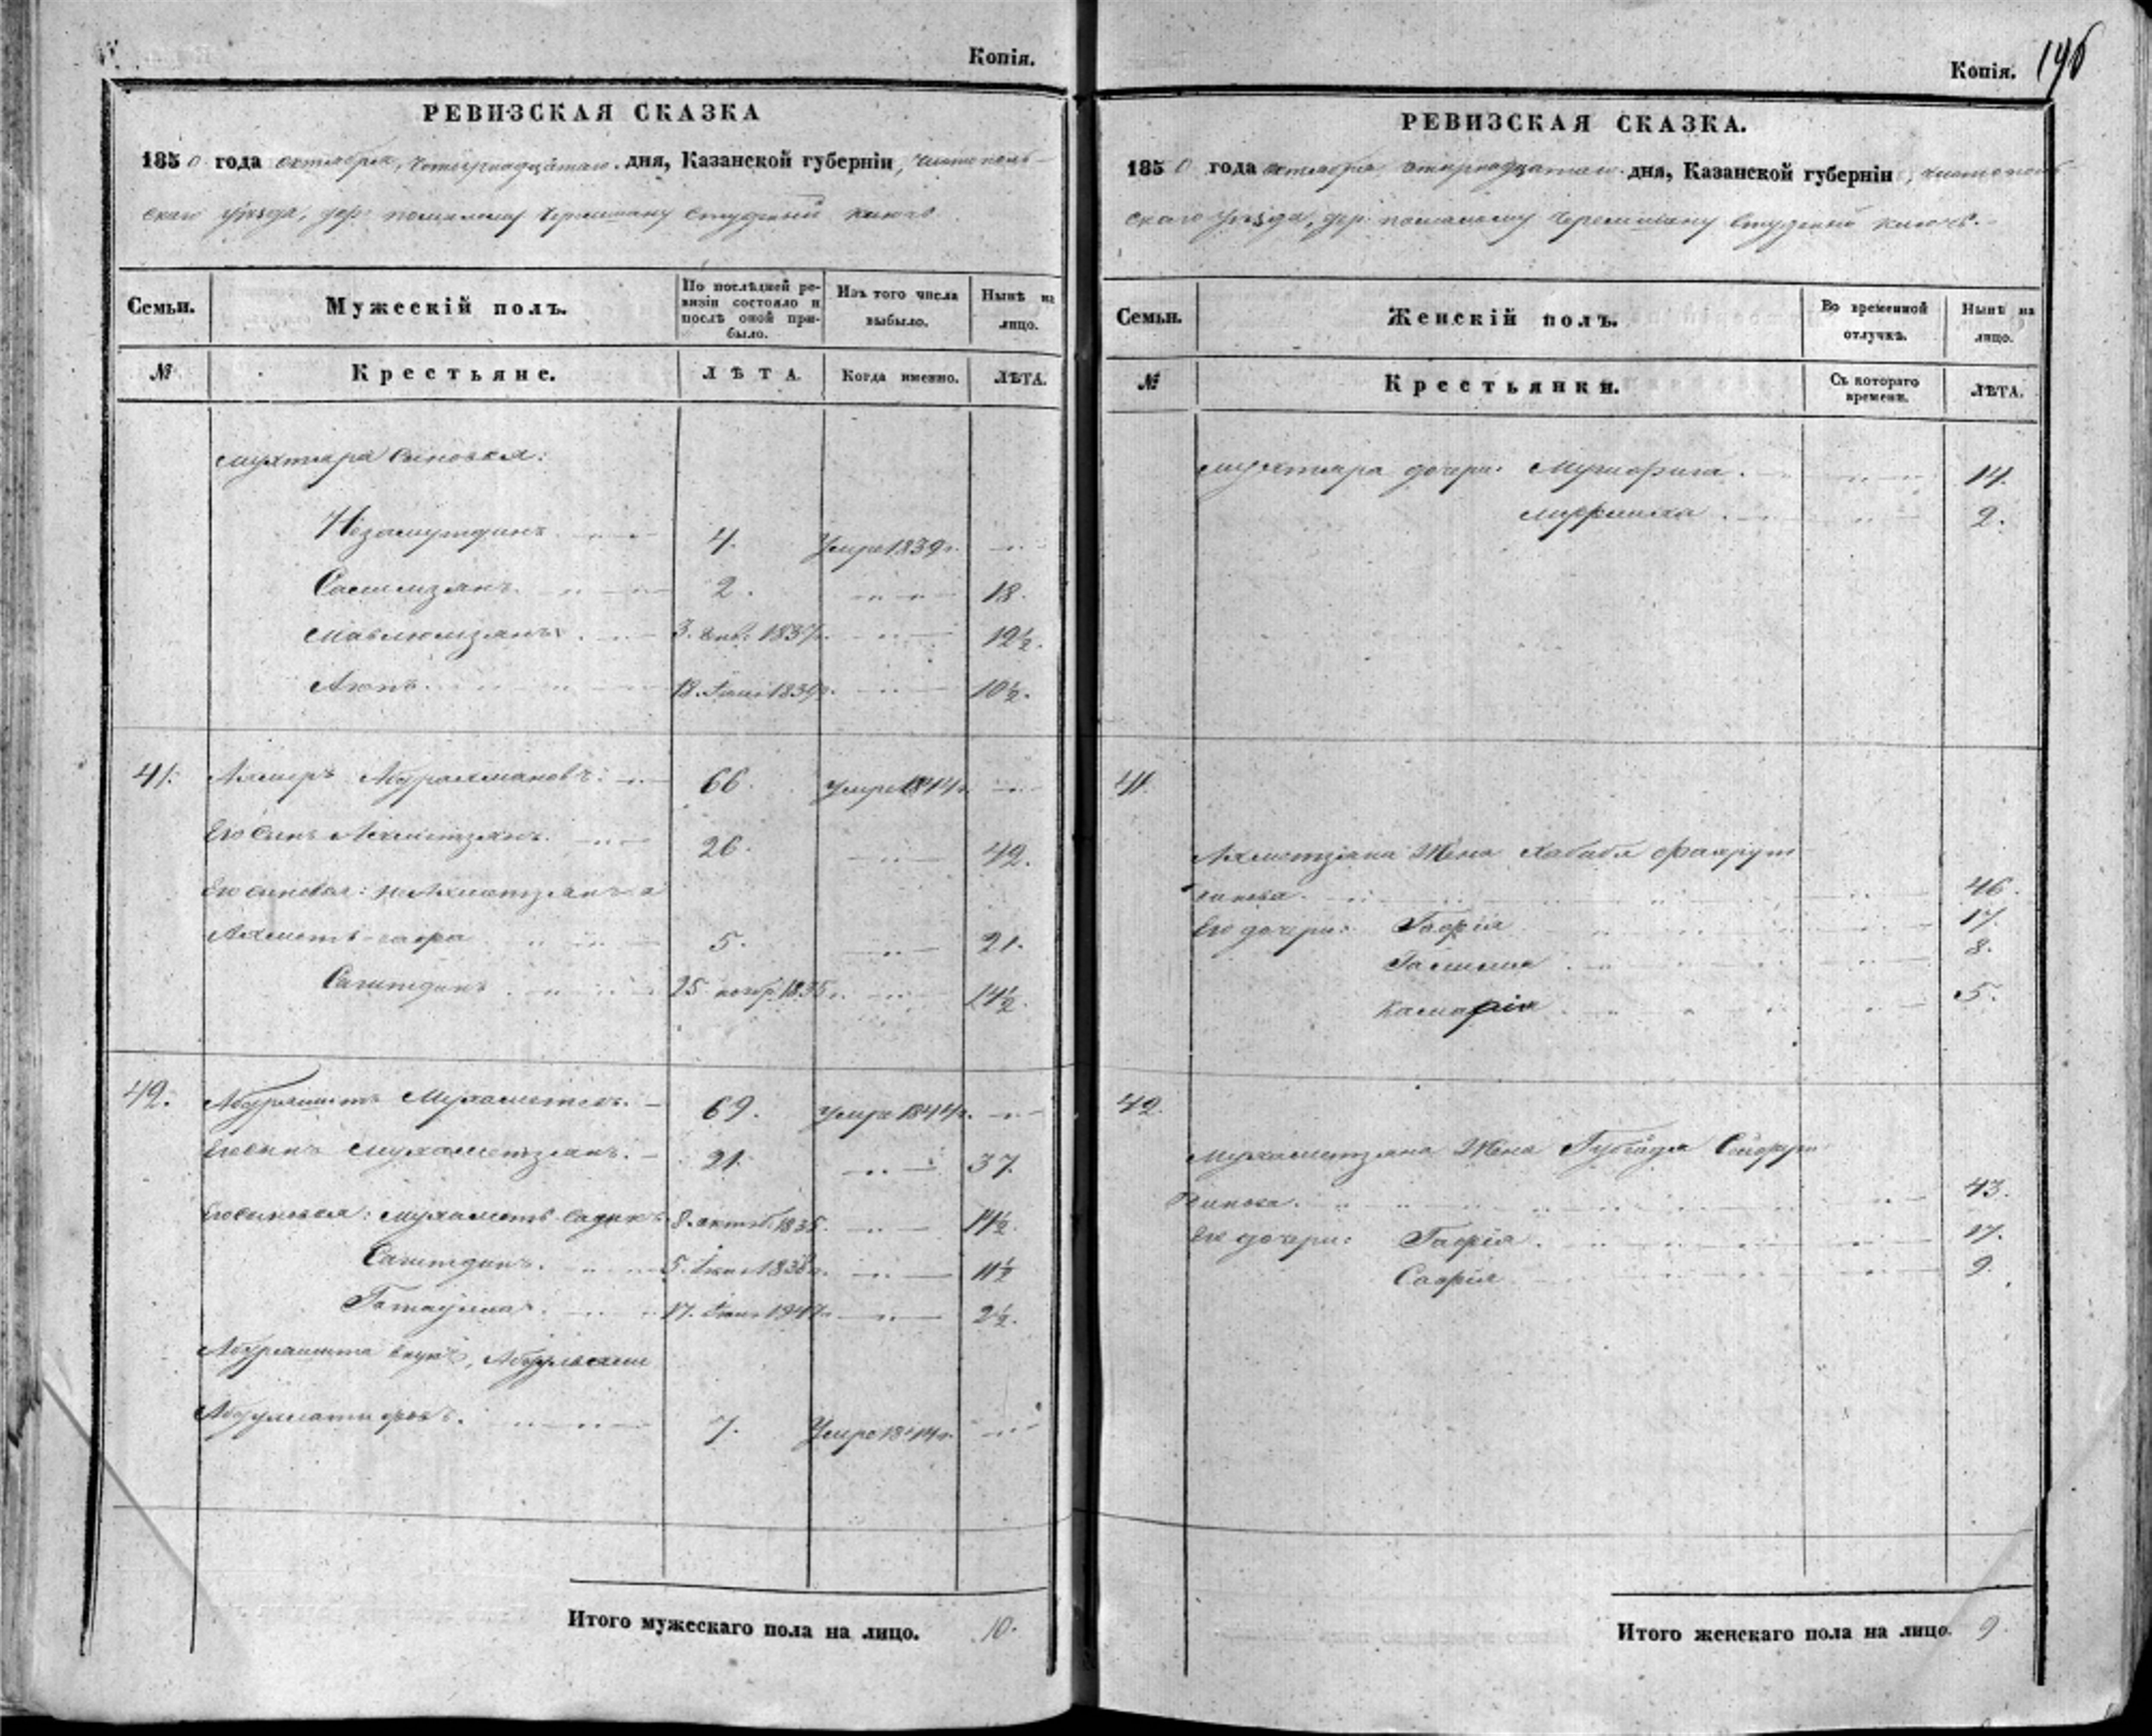 Копія.
РЕВИЗСКАЯ СКАЗКА
1850 года октября, четырнадцатаго дня, Казанской губерніи, Чистополь-
скаго уѣзда, дер. помалому Черемшану Студеный ключъ
Семьи.
Мужескій полъ.
По послѣдней ре-
визіи состояло и
послѣ оной при-
было.
Изъ того числа
выбыло.
Нынѣ на
лицо.
№
Крестьяне.
ЛѢТА.
Когда именно.
ЛѢТА.
Мухтара сыновья:
Низамутдинъ 4. Умре 1839г.
Салимзянъ 2. 18.
Мавлюмзянъ 3. 1837г. 12½.
Аюпъ 18. 1839г. 10½.
41. Абдрахмановъ 66. Умре 1844г.
Его сынъ Ахметзянъ 26. 42.
Его сыновья: Ахметзянъ
Ахметъ-сафа 5. 21.
Сагитдинъ 25 нояб. 1835г. 14½.
42. Абдряшитъ Мухаметевъ. 69. Умре 1844г.
Его сынъ Мухаметзянъ. 21. 37.
Его сыновья: Мухаметъ-садыкъ 8. октяб. 1835. 14½.
Сагитдинъ. 5. 1838г. 11½
Гатаулла. 17. 1847г. 2½.
Абдряшита внукъ,
7. Умре 1844г.
Итого мужескаго пола на лицо. 10.
Копія. 196
РЕВИЗСКАЯ СКАЗКА.
1850 года октября четырнадцатаго дня, Казанской губерніи, Чистополь-
скаго уѣзда, дер. помалому Черемшану Студеный ключъ.
Семьи.
Женскій полъ.
Во временной
отлучкѣ.
Нынѣ на
лицо.
№
Крестьянки.
Съ котораго
времени.
ЛѢТА.
Мухтара дочери: 14.
2.
41.
Ахметзяна Жена Хабибя Фахрут-
динова. 46.
Его дочери: Гафія 17.
Галима 8.
Камарія 5.
42.
Мухаметзяна Жена Сейфут-
динова. 43.
Его дочери: Гафія. 17.
Сафія 9.
Итого женскаго пола на лицо. 9.